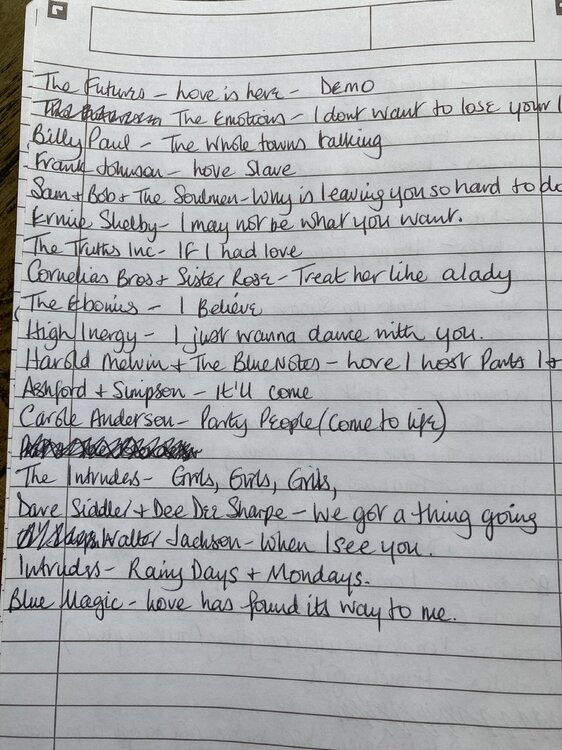 The Futures - Love is here - DEMO
The Emotions - I dont want to lose your l
Billy Paul - The whole towns talking
Frank Johnson - Love Slave
Sam + Bob + The Soulmen - Why is leaving you so hard to do
Ernie Shelby - I may not be what you want.
The Truths Inc - If I had love
Cornelias Bros + Sister Rose - Treat her like a lady
The Ebonies - I Believe
High Inergy - I just wanna dance with you.
Harold Melvin + The Blue Notes - Love I Lost Parts 1 +
Ashford + Simpson - It'll come
Carole Anderson - Party People (Come to life)
The Intruders - Girls, Girls, Girls,
Dave Siddler + Dee Dee Sharpe - We got a thing going
Walter Jackson - When I see you.
Intruders - Rainy Days + Mondays.
Blue Magic - Love has found its way to me.